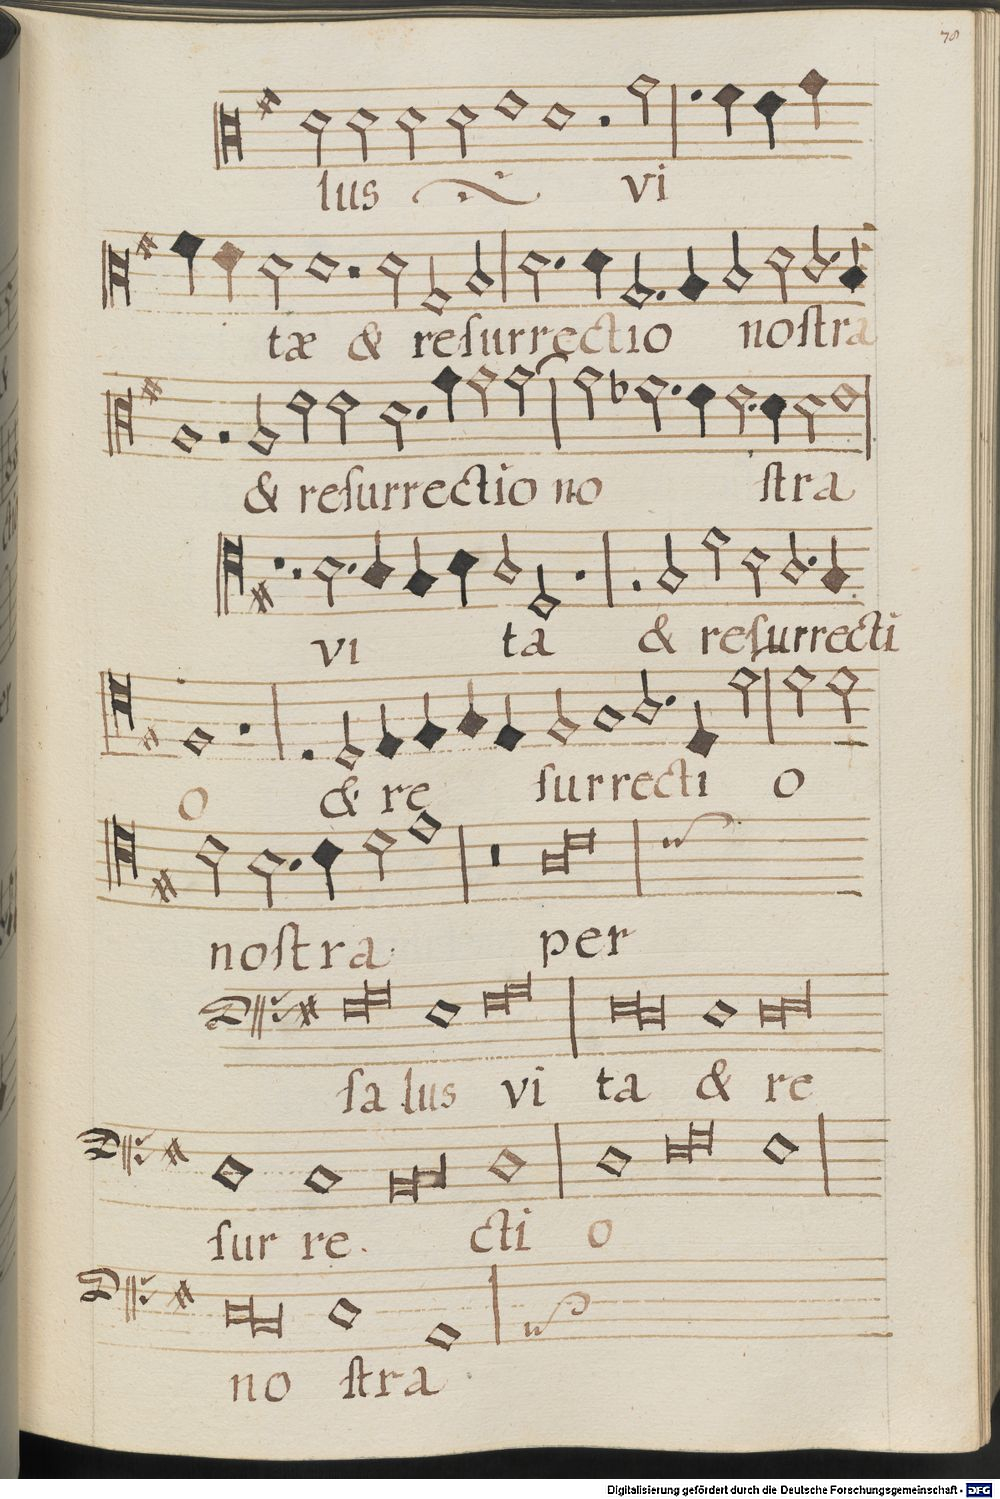 78
lus vi
tæ & reſurrectio noſtra
& reſurrectio no ſtra
vi ta & reſurrecti
o & re ſurrecti o
noſtra per
ſa lus vi ta & re
ſur re cti o
no ſtra
Digitalisierung gefördert durch die Deutsche Forschungsgemeinschaft - DFG